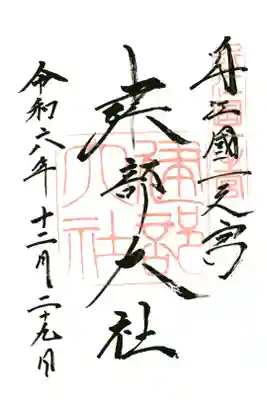 近江國一之宮
建部大社
令和六年 十二月二十九日
建部
大社